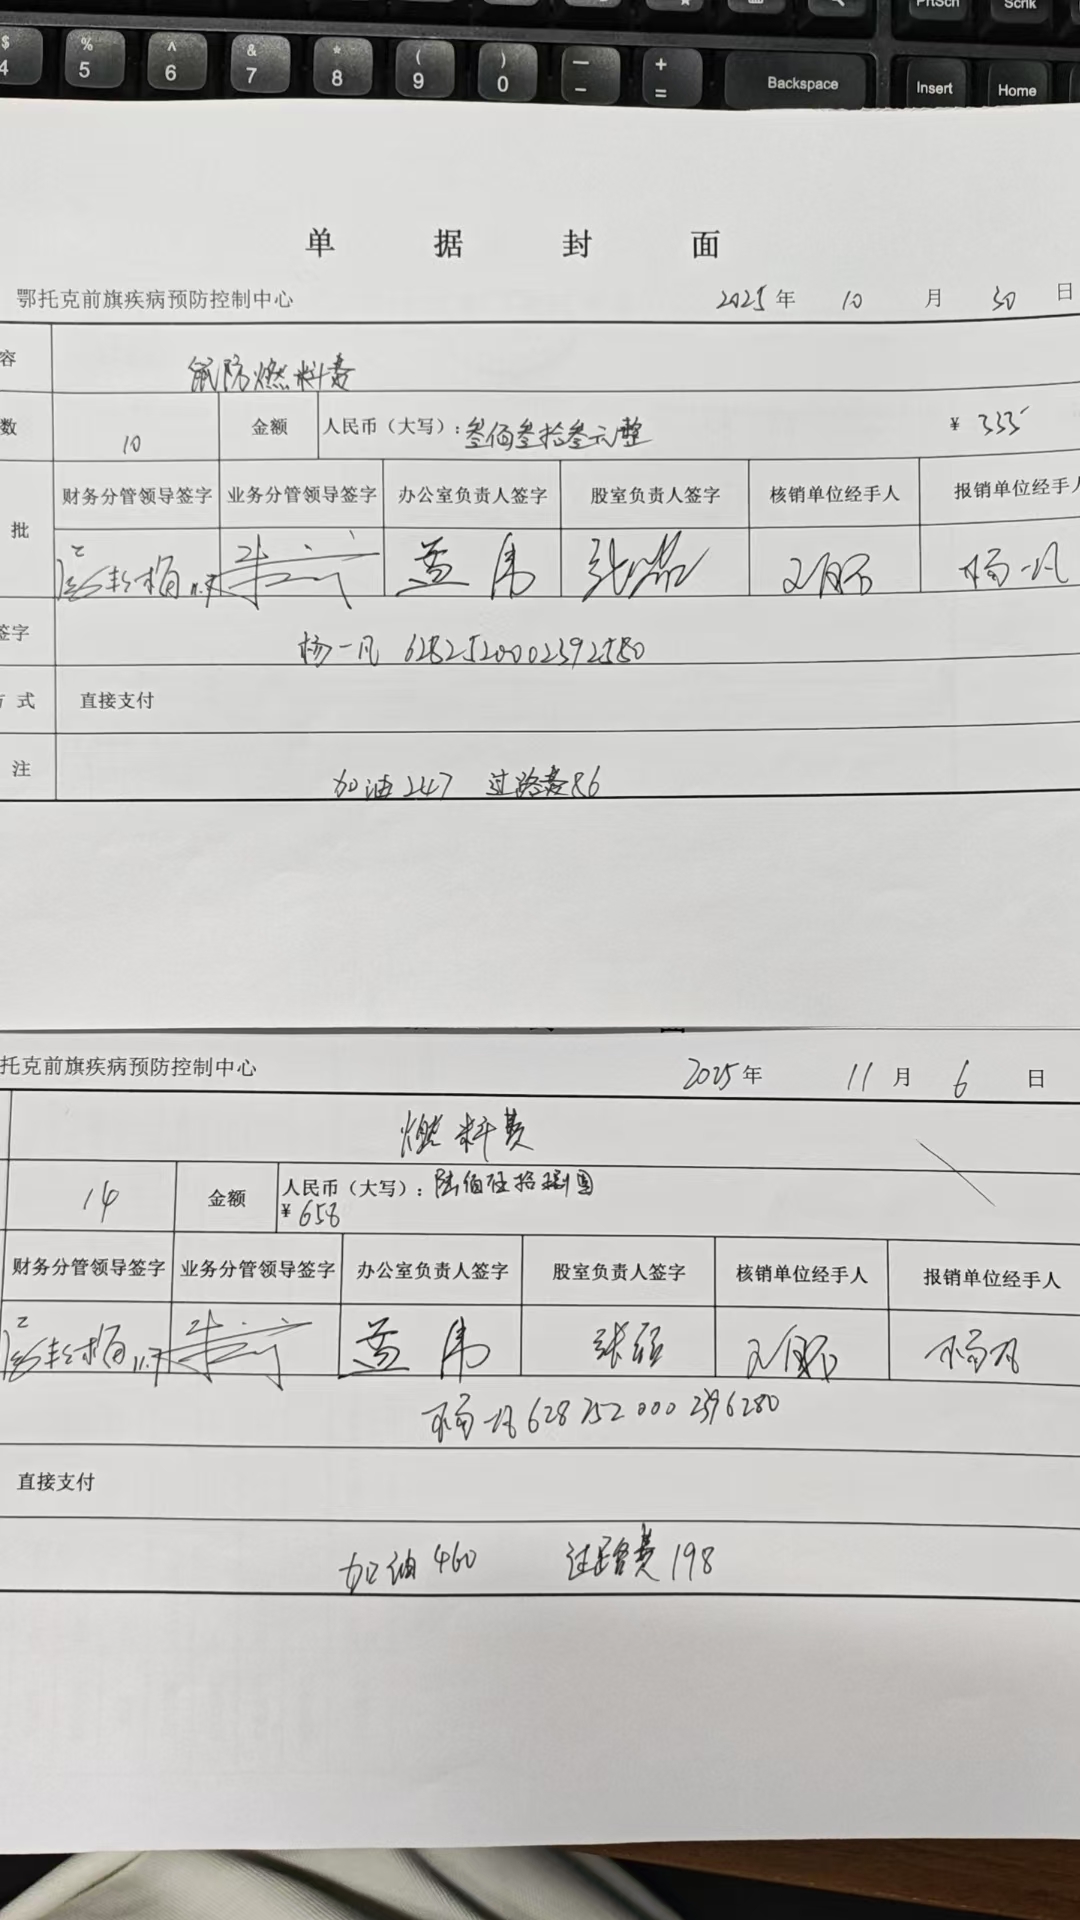 $ 4 % 5 ^ 6 & 7 * 8 ( 9 ) 0 — - + = Backspace PrtScn Insert ScrlK Home
单 据 封 面
鄂托克前旗疾病预防控制中心 2025年 10 月 30 日
容 鼠防燃料费
数 10 金额 人民币（大写）：叁佰叁拾叁元整 ¥ 333
批 财务分管领导签字 业务分管领导签字 办公室负责人签字 股室负责人签字 核销单位经手人 报销单位经手人
孟伟 杨一凡
签字 杨一凡 6282520002392580
方 式 直接支付
注 加油247 过路费86
面
托克前旗疾病预防控制中心 2025年 11 月 6 日
燃料费
14 金额 人民币（大写）：陆佰伍拾捌圆
¥ 658
财务分管领导签字 业务分管领导签字 办公室负责人签字 股室负责人签字 核销单位经手人 报销单位经手人
11.7 孟伟
杨一凡 6282520002396280
直接支付
加油460 过路费198